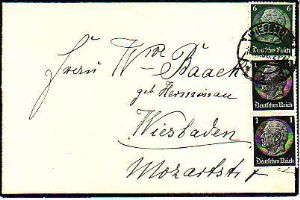 6
Deutsches Reich
WIESBADEN
1
Deutsches Reich
1
Deutsches Reich
Frau Wwe. Baack
geb. Hermenau
Wiesbaden
Mozartstr